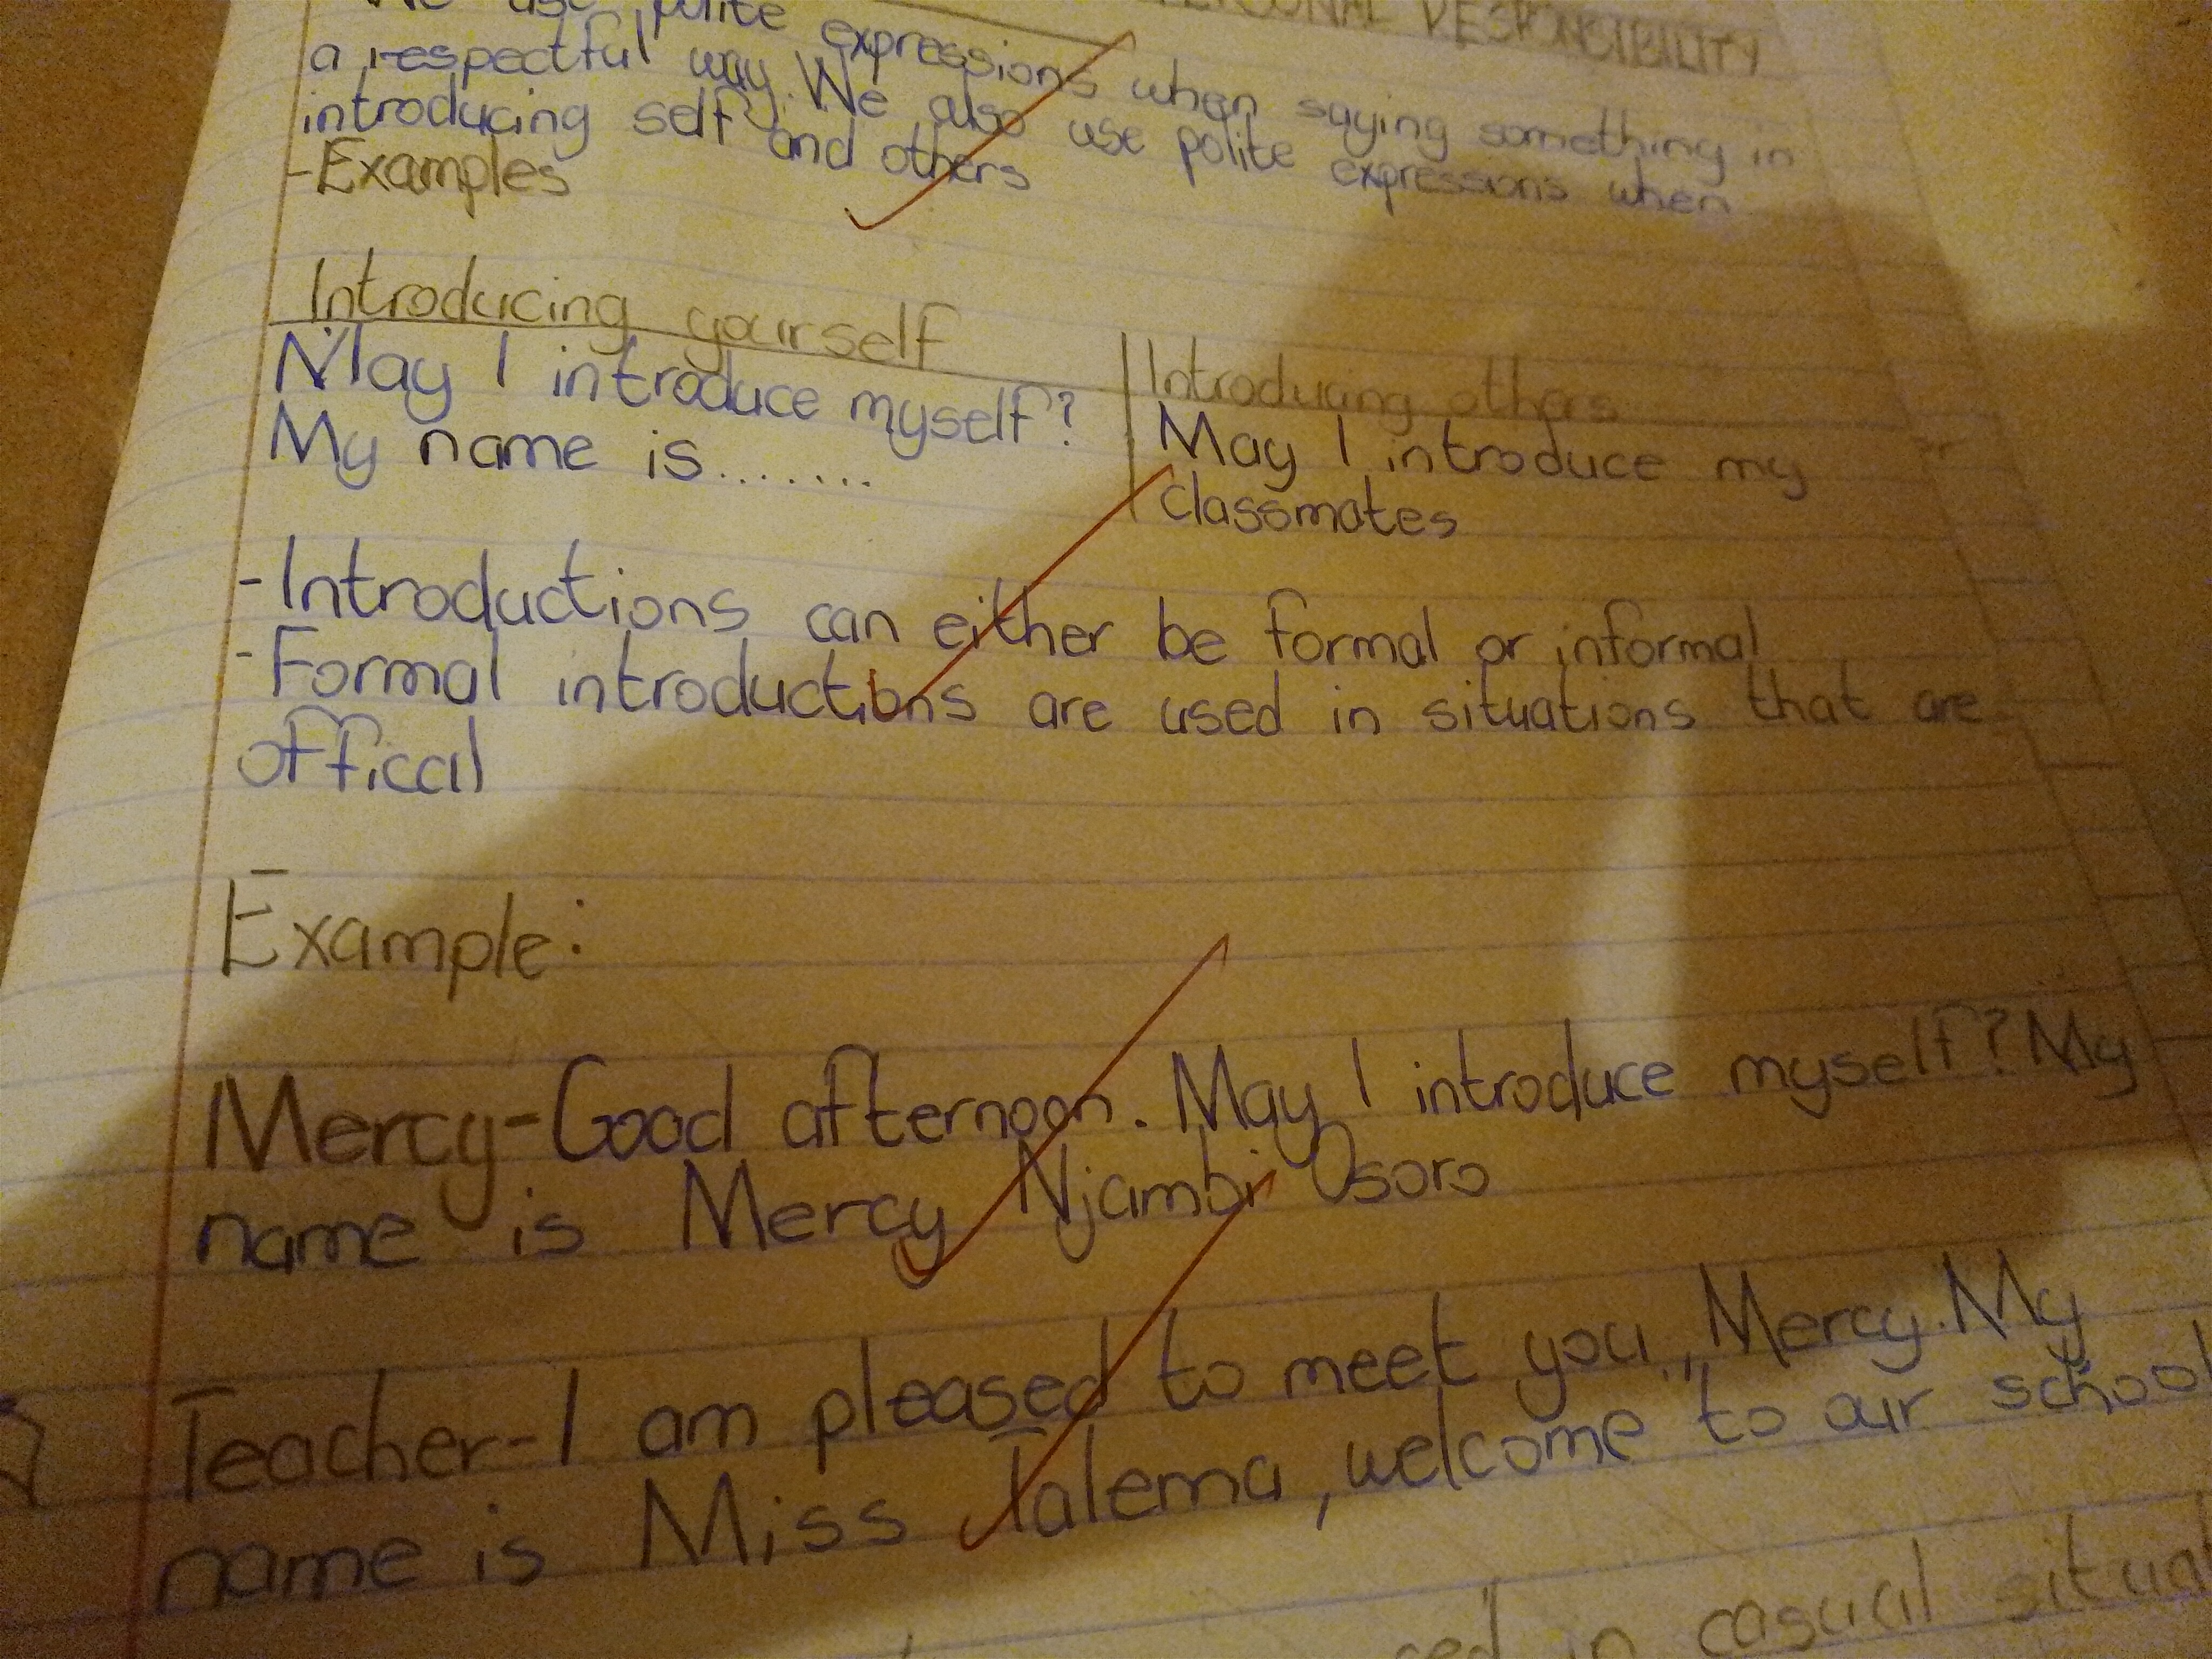 PERSONAL RESPONSIBILITY
We use polite expressions when saying something in
a respectful way. We also use polite expressions when
introducing self and others
-Examples
Introducing yourself
May I introduce myself?
My name is.......
Introducing others
May I introduce my
classmates
-Introductions can either be formal or informal
-Formal introductions are used in situations that are
offical
Example:
Mercy-Good afternoon. May I introduce myself? My
name is Mercy Njambi Osoro
Teacher-I am pleased to meet you, Mercy. My
name is Miss Talema, welcome to our school
in casual